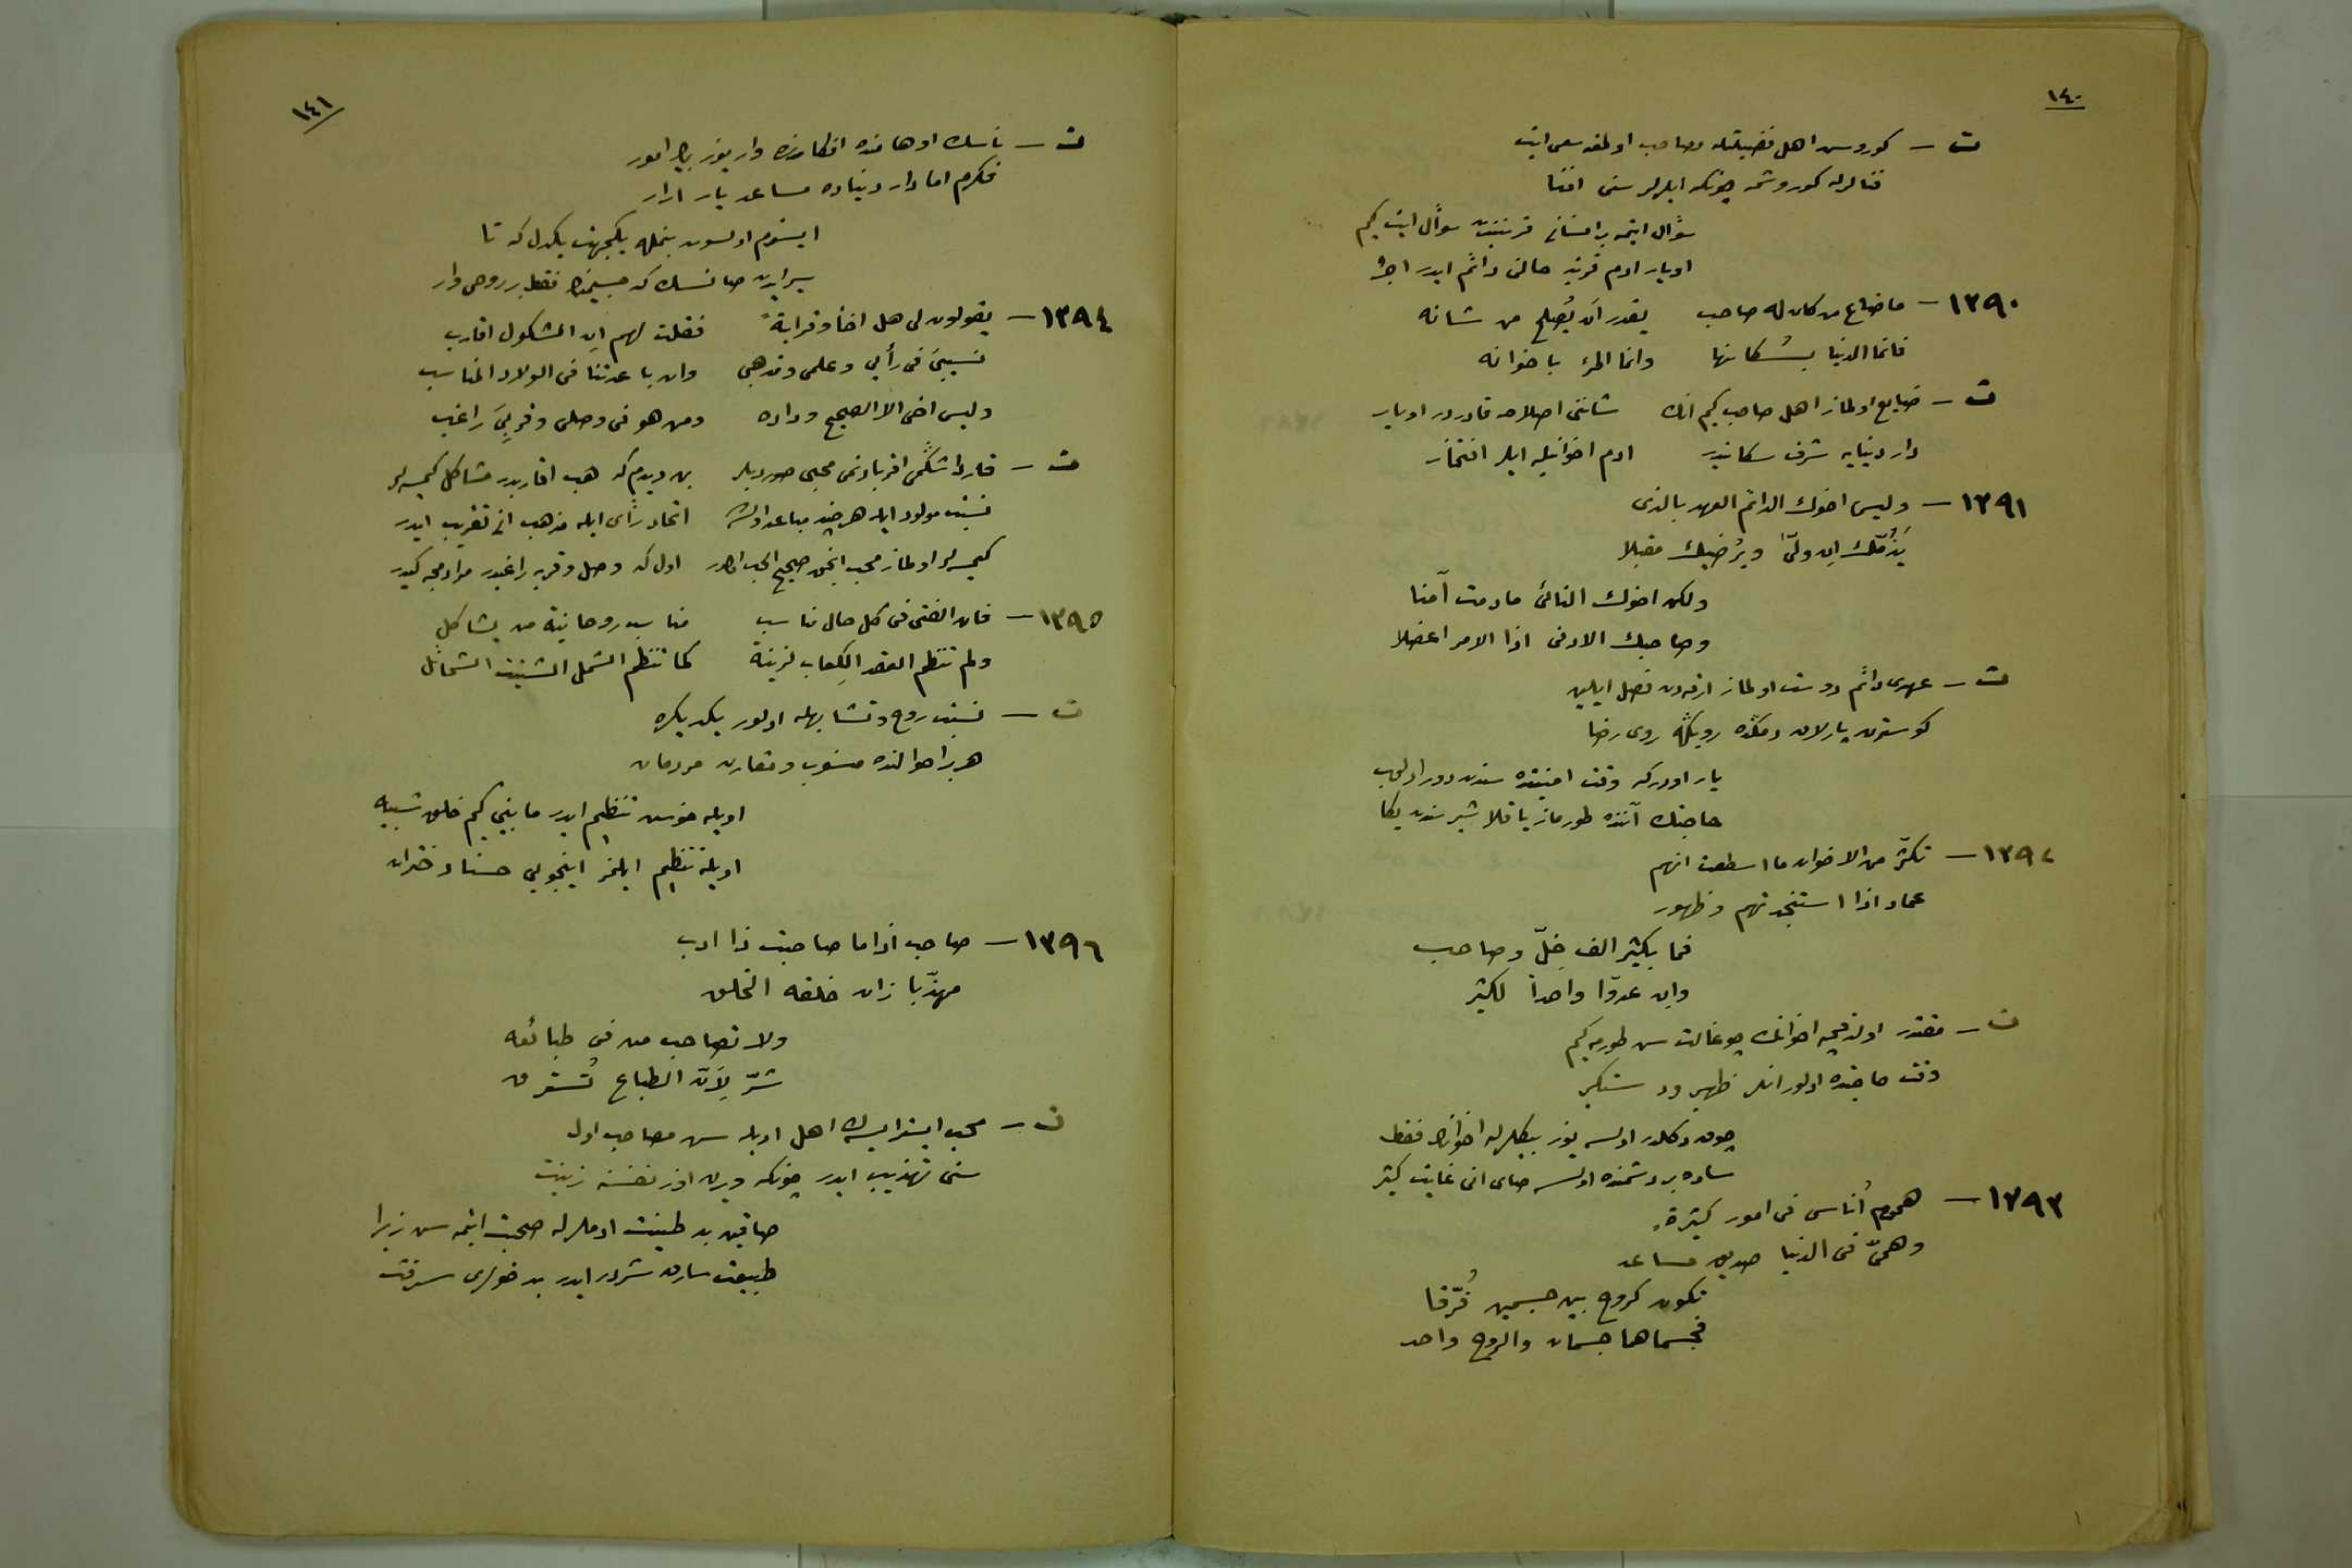 ١٤٠
ت ـ كوروسن اهل فضيلتله مصاحب اولمغه سعى ايت
فنالرله كوروشمه چونكه ايلرلر سنى افنا
سؤال ايتمه بر انسانى قرينيندن سؤال ايت كيم
اويار ادم قرينه حالنى دائم ايدر اجرا
١٣٩٠ ـ ماضاع من كان له صاحب   يقدر أن يُصلح من شانه
فانما الدنيا بسُكانها   وانما المرء باخوانه
ت ـ ضايع اولماز اهل صاحب كيم انك   شاننى اصلاحه قادردر اويار
دار دنيايه شرف سكانيدر   ادم اخوانيله ايلر افتخار
١٣٩١ ـ وليس اخوك الدائم العهد بالذى
يَذُمّك إن ولّى ويُرضيك مقبلا
ولكن اخوك النائى مادمت آمنا
وصاحبك الادنى اذا الامر اعضلا
ت ـ عهدى دائم دوست اولماز ارقه دن فصل ايلين
كوسترن يارلان دمكده رويكه روى رضا
يار اودركه وقت امنيتده سندن دور اولوب
حاجتك آننده طورماز ياقلاشير سندن يكا
١٣٩٢ ـ تكثّر من الاخوان ما اسطعت انهم
عماد اذا استنجدتهم وظهور
فما بكثير الف خِلّ وصاحب
وإن عدوّا واحداً لكثير
ت ـ مقتدر اولدقجه اخوانك چوغالت سن طورمه كيم
وقت حاجتده اولور انلر ظهير ودستكير
چوق دكلدر اولسه يوز بيكلرله اخوانك فقط
ساده بر دشمنده اولسه صاى انى غايت كثير
١٣٩٣ ـ هموم أناس فى امور كثيرة
وهمّى فى الدنيا صديق مساعد
نكون كروح بين جسمين فُرّقا
فجسماهما جسمان والروح واحد
١٤١
ت ـ ناسك اوهامنده افكارنده وار يوز بيك امور
فكرم اما دار دنياده مساعد يار ارار
ايسترم اولسون بنمله يكجهت يكدل كه تا
بير ايدن صانسك كه جسيمز فقط بر روحى وار
١٣٩٤ ـ يقولون لى هل اخاً وقرابةً   فقلت لهم إن الشكول اقارب
نسيبىَ فى رأيى وعلمى ومذهبى   وان باعدتنا فى الولاد المناسب
وليس اخى الا الصحيح وداده   ومن هو فى وصلى وقربىَ راغب
ت ـ قارداشكمى اقربادنمى محبى صورديلر   بن ديدم كه هب اقاربدر مشاكل كيمسه لر
نسبت مولود ايله هر چند مباعد اولسه   اتحاد رأى ايله مذهب انى تقريب ايدر
كيمسه لر اولماز محب انجق صحيح الحب اولور   اول كه وصل وقربه راغبدر مرادمجه كيدر
١٣٩٥ ـ فان الفتى فى كل حال مناسب   مناسب روحانية من يشاكل
ولم تنظم العقد الكِعاب لزينة   كما تنظم الشمل الشتيت الشمائل
ت ـ نسبت روح وتشابهله اولور يكديكره
هر بر احوالنده منسوب ومقارن مردمان
اويله مونس تنظيم ايدر مابينى كيم خلق شبيه
اويله تنظيم ايلمز اينجويى حسنا دختران
١٣٩٦ ـ صاحب اذا ما صاحبت ذا ادب
مهذّبا زان خلقه الخلق
ولا تصاحب من فى طبائعه
شرّ لأنّ الطباع تُسترق
ت ـ محب ايسترايسه ك اهل ادبله سن مصاحب اول
سنى تهذيب ايدر چونكه ويرن اوز نفسنه زينت
صاقين بد طينت ادملرله صحبت ايتمه سن زيرا
طبيعت سارق شردر ايدر بد خولرى سرقت